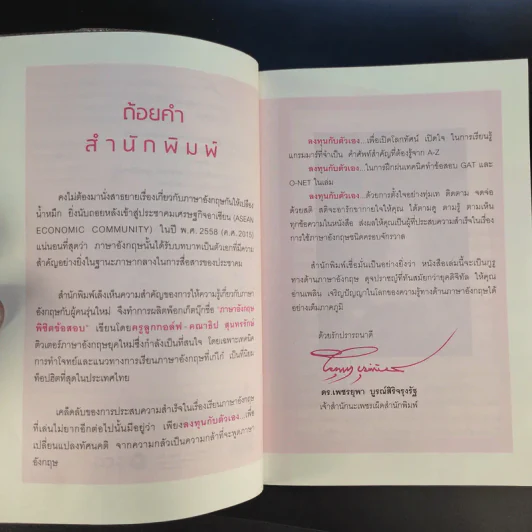 ถ้อยคำ
สำนักพิมพ์
คงไม่ต้องมานั่งสาธยายเรื่องเกี่ยวกับภาษาอังกฤษกันให้เปลือง
น้ำหมึก ยิ่งนับถอยหลังเข้าสู่ประชาคมเศรษฐกิจอาเซียน (ASEAN
ECONOMIC COMMUNITY) ในปี พ.ศ. 2558 (ค.ศ. 2015)
แน่นอนที่สุดว่า ภาษาอังกฤษนั้นได้รับบทบาทเป็นตัวเอกที่มีความ
สำคัญอย่างยิ่งในฐานะภาษากลางในการสื่อสารของประชาคม
สำนักพิมพ์เล็งเห็นความสำคัญของการให้ความรู้เกี่ยวกับภาษา
อังกฤษกับผู้คนรุ่นใหม่ จึงทำการผลิตพ็อกเก็ตบุ๊กชื่อ "ภาษาอังกฤษ
พิชิตข้อสอบ" เขียนโดยครูลูกกอล์ฟ-คณาธิป สุนทรรักษ์
ติวเตอร์ภาษาอังกฤษยุคใหม่ซึ่งกำลังเป็นที่สนใจ โดยเฉพาะเทคนิค
การทำโจทย์และแนวทางการเรียนภาษาอังกฤษที่เก๋ไก๋ เป็นที่นิยม
ท็อปฮิตที่สุดในประเทศไทย
เคล็ดลับของการประสบความสำเร็จในเรื่องเรียนภาษาอังกฤษ
ที่เล่นไม่ยากอีกต่อไปนั้นมีอยู่ว่า เพียงลงทุนกับตัวเอง...เพื่อ
เปลี่ยนแปลงทัศนคติ จากความกลัวเป็นความกล้าที่จะพูดภาษา
อังกฤษ
ลงทุนกับตัวเอง...เพื่อเปิดโลกทัศน์ เปิดใจ ในการเรียนรู้
แกรมมาร์ที่จำเป็น คำศัพท์สำคัญที่ต้องรู้จาก A-Z
ลงทุนกับตัวเอง...ในการฝึกฝนเทคนิคทำข้อสอบ GAT และ
O-NET ในเล่ม
ลงทุนกับตัวเอง...ด้วยการตั้งใจอย่างทุ่มเท ติดตาม จดจ่อ
ด้วยสติ สติจะอารักขากายใจให้คุณ ได้ตามดู ตามรู้ ตามเห็น
ทุกข้อความในหนังสือ ส่งผลให้คุณเป็นผู้ที่ประสบความสำเร็จในเรื่อง
การใช้ภาษาอังกฤษชนิดครอบจักรวาล
สำนักพิมพ์เชื่อมั่นเป็นอย่างยิ่งว่า หนังสือเล่มนี้จะเป็นกูรู
ทางด้านภาษาอังกฤษ ดุจปราชญ์ที่ทันสมัยกว่ายุคดิจิทัล ให้คุณ
อ่านเพลิน เจริญปัญญาในโลกของความรู้ทางด้านภาษาอังกฤษได้
อย่างเต็มภาคภูมิ
ด้วยรักปรารถนาดี
ดร.เพชรยุพา บูรณ์สิริจรุงรัฐ
เจ้าสำนักนะเพชรเม็ดสำนักพิมพ์